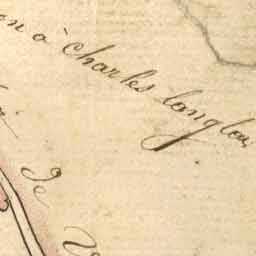 on à Charles Langlois
de